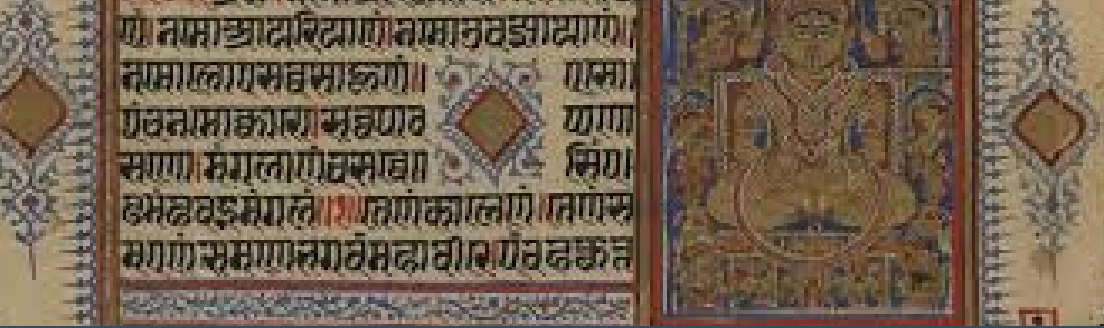 णं। नमो आयरियाणं। नमो उवज्झायाणं।
नमो लोए सव्वसाहूणं॥ एसो
पंचनमोक्कारो। सव्वपाव प्पणा
सणो। मंगलाणं च सव्वे सिं प
ढमं हवइ मंगलं॥१॥ तेणं कालेणं। तेणं स
मएणं समणे भगवं महावीरे पंचह